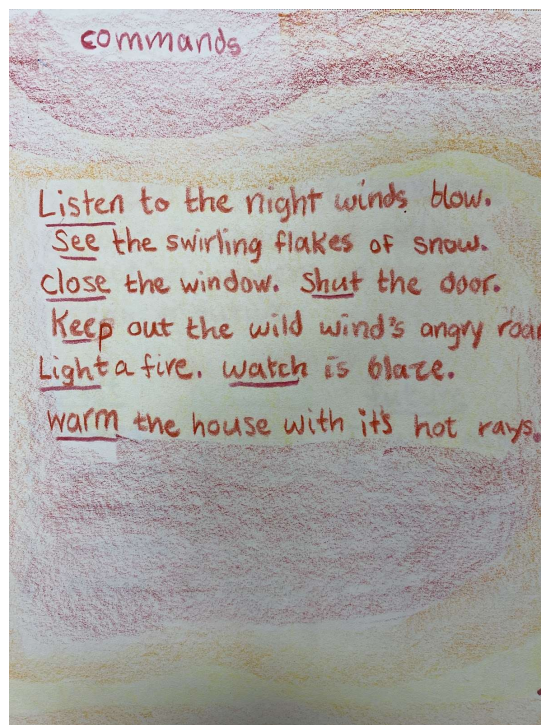 commands
Listen to the night winds blow.
See the swirling flakes of snow.
close the window. Shut the door.
Keep out the wild wind's angry roar
Light a fire. watch is blaze.
warm the house with it's hot rays.